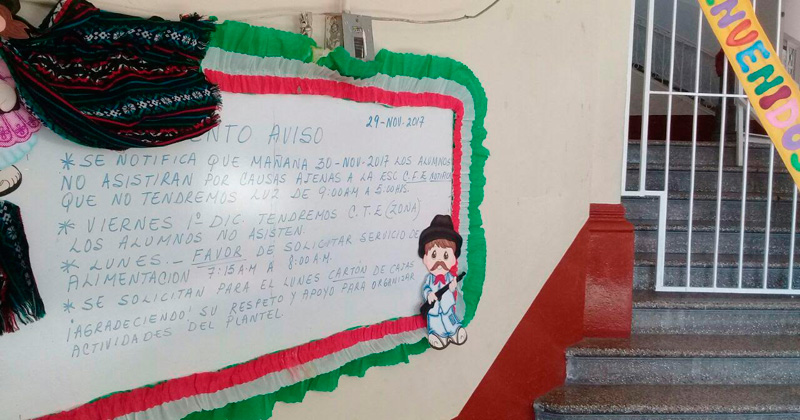 29-NOV-2017
AVISO
* SE NOTIFICA QUE MAÑANA 30-NOV-2017 LOS ALUMNOS
NO ASISTIRAN POR CAUSAS AJENAS A LA ESC C.F.E
QUE NO TENDREMOS LUZ DE 9:00AM A 5:00HS.
* VIERNES 1º DIC. TENDREMOS C.T.E (ZONA)
LOS ALUMNOS NO ASISTEN.
* LUNES.- FAVOR DE SOLICITAR SERVICIO DE
ALIMENTACION 7:15 A.M A 8:00 A.M.
* SE SOLICITAN PARA EL LUNES CARTÓN DE CAJAS
¡AGRADECIENDO! SU RESPETO Y APOYO PARA ORGANIZAR
ACTIVIDADES DEL PLANTEL
ENVENIDOS